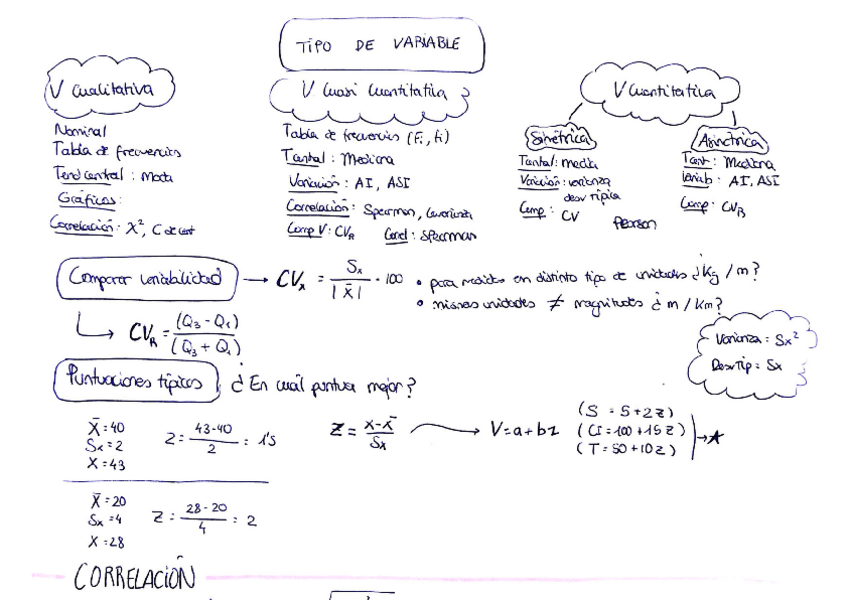 TIPO DE VARIABLE
V Cualitativa
Nominal
Tabla de frecuencias
Tend central : Moda
Gráficos:
Correlación : X², C de cont
V Cuasi Cuantitativa
Tabla de frecuencias (Fi, fi)
Tcental : Mediana
Variación : AI, ASI
Correlación : Spearman, Covarianza
Comp V : CVR Corel : Spearman
V Cuantitativa
Simétrica
Tcental : media
Variación : varianza
desv típica
Comp : CV
Pearson
Asimétrica
Tcent : Mediana
Variab : AI, ASI
Comp : CVR
Comparar variabilidad → CVx = Sx / |X̄| · 100
• para medidas en distinto tipo de unidades ¿Kg / m?
• mismas unidades ≠ magnitudes ¿ m / Km?
CVR = (Q3 - Q1) / (Q3 + Q1)
Varianza : Sx²
Desv Tip = Sx
Puntuaciones típicas ¿ En cuál puntua mejor?
X̄ = 40
Sx = 2
X = 43
Z = 43-40 / 2 = 1'5
Z = x-x̄ / Sx → V = a + bz
(S = 5+2z)
(CI = 100 + 15z)
(T = 50+10z)
X̄ = 20
Sx = 4
X = 28
Z = 28-20 / 4 = 2
CORRELACIÓN